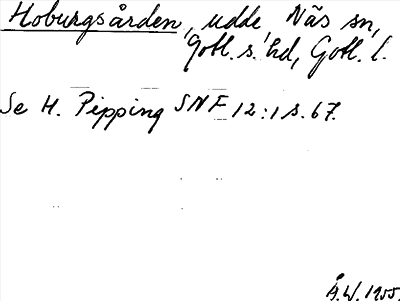 Hoburgsården, udde, Näs sn,
Gotl. s. hd, Gotl. l.
Se H. Pipping SNF 12:1 s. 67.
Å.W. 1955.